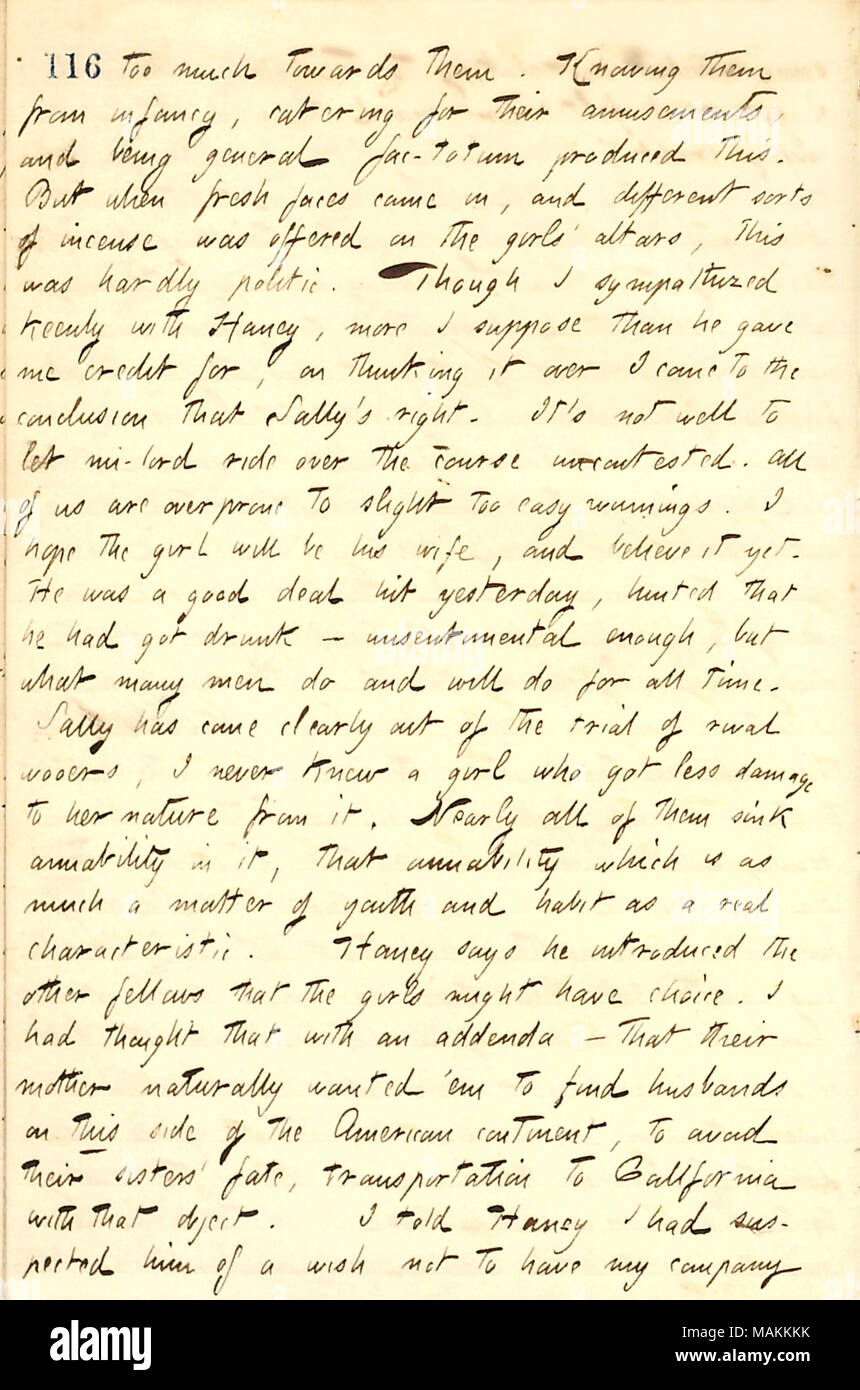 116 too much towards them. Knowing them
from infancy, catering for their amusements,
and being general fac-totum produced this.
But when fresh faces came in, and different sorts
of incense was offered on the girls' altars, this
was hardly politic. Though I sympathized
keenly with Haney, more I suppose than he gave
me credit for, on thinking it over I come to the
conclusion that Sally's right. It's not well to
let mi-lord ride over the course uncontested. All
of us are overprone to slight too easy winnings. I
hope the girl will be his wife, and believe it yet.
He was a good deal hit yesterday, hinted that
he had got drunk — unsentimental enough, but
what many men do and will do for all time.
Sally has come clearly out of the trial of rival
wooers, I never knew a girl who got less damage
to her nature from it. Nearly all of them sink
amiability in it, that amiability which is as
much a matter of youth and habit as a real
characteristic. Haney says he introduced the
other fellows that the girls might have choice. I
had thought that with an addenda — that their
mother naturally wanted 'em to find husbands
on this side of the American continent, to avoid
their sisters' fate, transportation to California
with that object. I told Haney I had sus-
pected him of a wish not to have my company
alamy
Image ID: MAKKKK
www.alamy.com